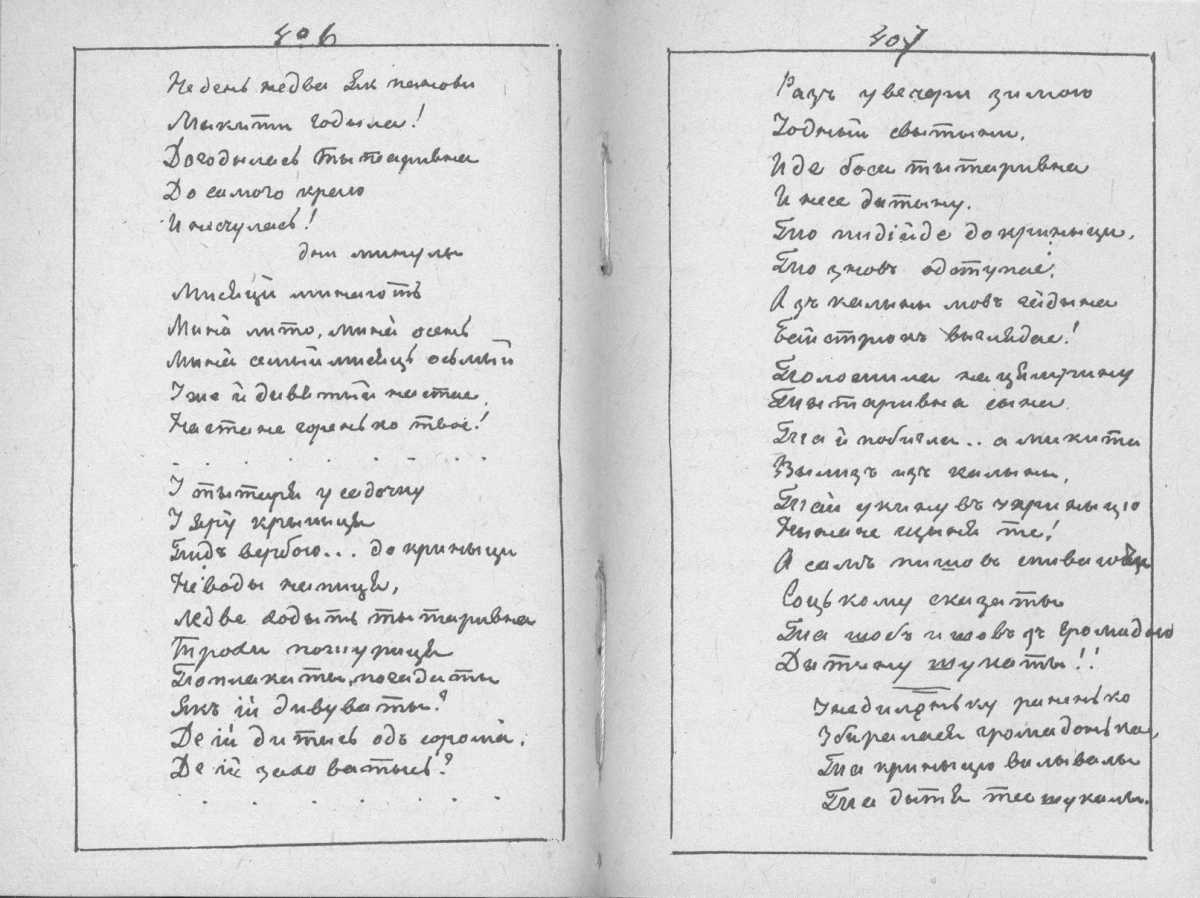 406
Не день не два як панови
Микити годыла!
Догодылась тытаривна
До самого краю
И нечулась!
дни минулы
Мисяци минають
Мина лито, мина осень
Мина семый мисяць осьмый
Уже й девятый настае
Настане горенько твое!
. . . . . . . .
У тытаря у садочку
У яру крыныця
Пидъ вербою... до крыныци
Не воды напиця,
Ледве ходыть тытаривна
Трохи пожурыця
Поплакаты, погадаты
Якъ ій дивуваты?
Де ій дитысь одъ сорома,
Де ій заховатысь?
. . . . . . .
407
Разъ увечери зимою
У одный свытыни,
Иде боса тытаривна
И несе дытыну.
То пидійде до крыныци,
То зновъ одступае,
А зъ калыны мовъ гадына
Байстрюкъ выглядае!
Положила на цямрину
Тытаривна сына
Та й побигла.. а микита
Вылизъ изъ калыны,
Та й укинувъ у крыныцю
Неначе щыня те!
А самъ пишовъ спиваючы
Соцькому сказаты
Та щобъ ишовъ зъ громадою
Дытыну шукаты!!
У недиленьку раненько
Збиралася громадонька,
Та крыныцю вылывалы
Та дытя те шукалы.